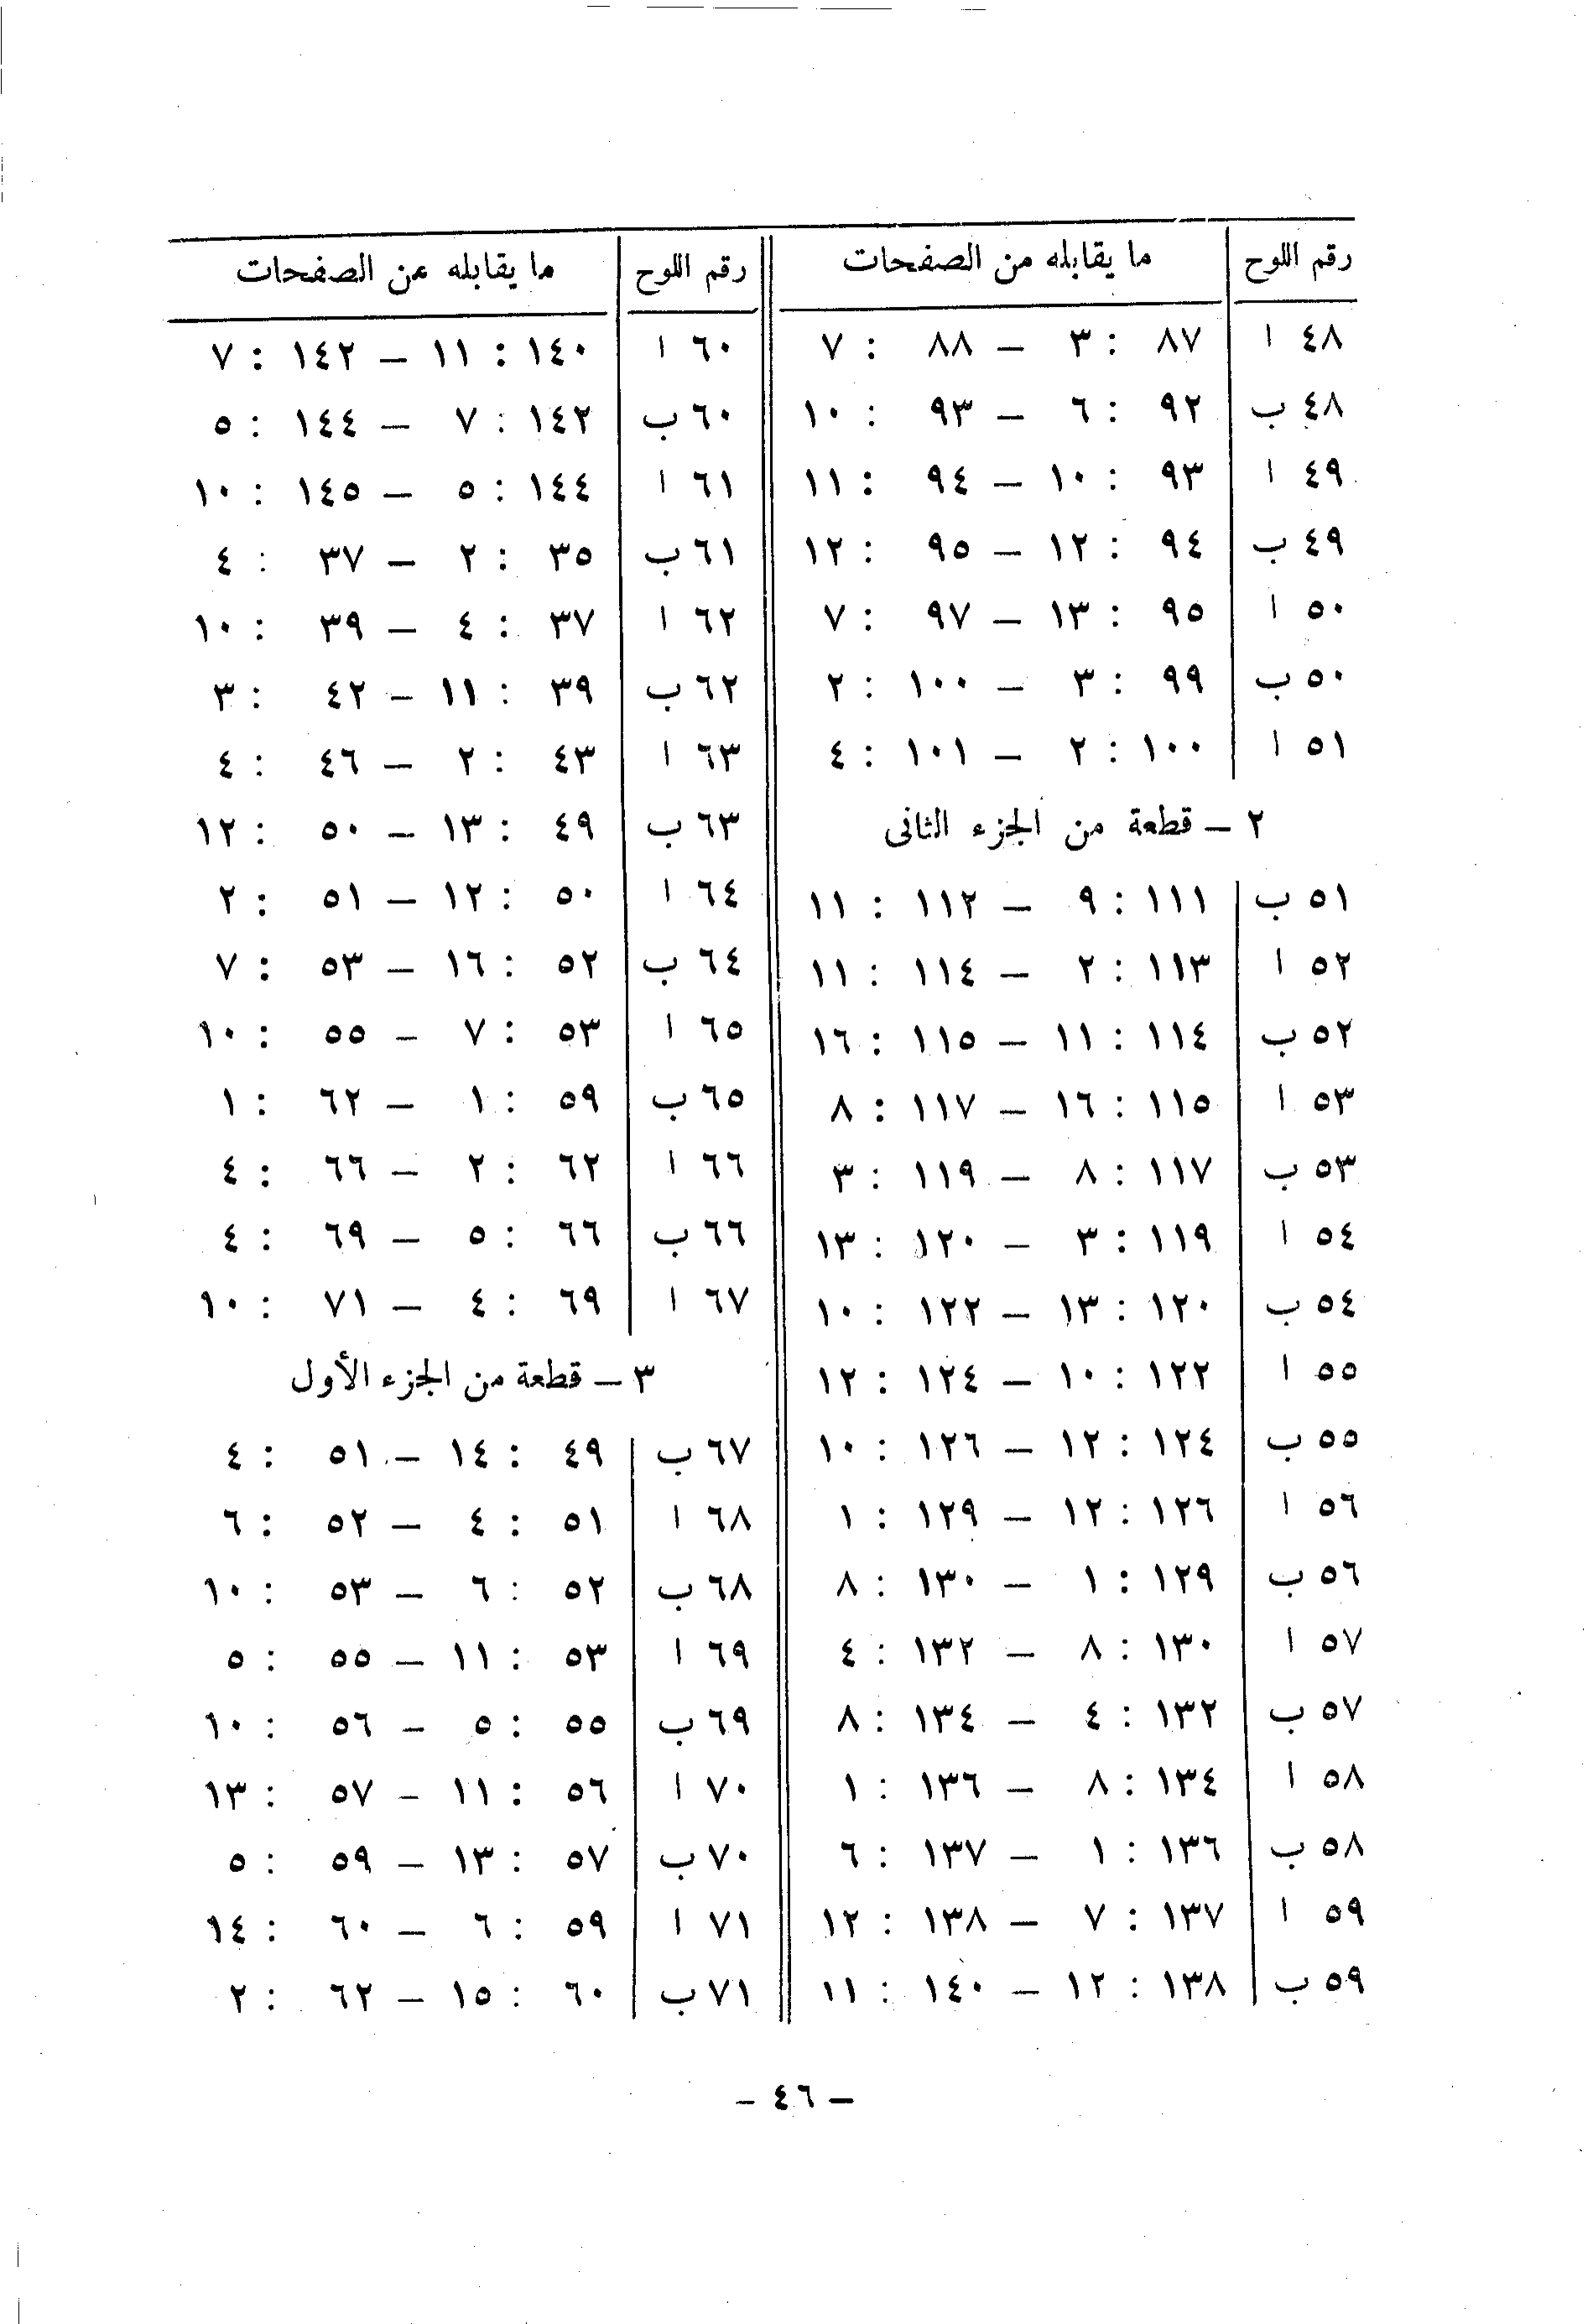 رقم اللوح ما يقابله من الصفحات
٤٨ ا ٨٧ : ٣ – ٨٨ : ٧
٤٨ ب ٩٢ : ٦ – ٩٣ : ١٠
٤٩ ا ٩٣ : ١٠ – ٩٤ : ١١
٤٩ ب ٩٤ : ١٢ – ٩٥ : ١٢
٥٠ ا ٩٥ : ١٣ – ٩٧ : ٧
٥٠ ب ٩٩ : ٣ – ١٠٠ : ٢
٥١ ا ١٠٠ : ٢ – ١٠١ : ٤
٢ – قطعة من الجزء الثانى
٥١ ب ١١١ : ٩ – ١١٢ : ١١
٥٢ ا ١١٣ : ٢ – ١١٤ : ١١
٥٢ ب ١١٤ : ١١ – ١١٥ : ١٦
٥٣ ا ١١٥ : ١٦ – ١١٧ : ٨
٥٣ ب ١١٧ : ٨ – ١١٩ : ٣
٥٤ ا ١١٩ : ٣ – ١٢٠ : ١٣
٥٤ ب ١٢٠ : ١٣ – ١٢٢ : ١٠
٥٥ ا ١٢٢ : ١٠ – ١٢٤ : ١٢
٥٥ ب ١٢٤ : ١٢ – ١٢٦ : ١٠
٥٦ ا ١٢٦ : ١٢ – ١٢٩ : ١
٥٦ ب ١٢٩ : ١ – ١٣٠ : ٨
٥٧ ا ١٣٠ : ٨ – ١٣٢ : ٤
٥٧ ب ١٣٢ : ٤ – ١٣٤ : ٨
٥٨ ا ١٣٤ : ٨ – ١٣٦ : ١
٥٨ ب ١٣٦ : ١ – ١٣٧ : ٦
٥٩ ا ١٣٧ : ٧ – ١٣٨ : ١٢
٥٩ ب ١٣٨ : ١٢ – ١٤٠ : ١١
رقم اللوح ما يقابله من الصفحات
٦٠ ا ١٤٠ : ١١ – ١٤٢ : ٧
٦٠ ب ١٤٢ : ٧ – ١٤٤ : ٥
٦١ ا ١٤٤ : ٥ – ١٤٥ : ١٠
٦١ ب ٣٥ : ٢ – ٣٧ : ٤
٦٢ ا ٣٧ : ٤ – ٣٩ : ١٠
٦٢ ب ٣٩ : ١١ – ٤٢ : ٣
٦٣ ا ٤٣ : ٢ – ٤٦ : ٤
٦٣ ب ٤٩ : ١٣ – ٥٠ : ١٢
٦٤ ا ٥٠ : ١٢ – ٥١ : ٢
٦٤ ب ٥٢ : ١٦ – ٥٣ : ٧
٦٥ ا ٥٣ : ٧ – ٥٥ : ١٠
٦٥ ب ٥٩ : ١ – ٦٢ : ١
٦٦ ا ٦٢ : ٢ – ٦٦ : ٤
٦٦ ب ٦٦ : ٥ – ٦٩ : ٤
٦٧ ا ٦٩ : ٤ – ٧١ : ١٠
٣ – قطعة من الجزء الأول
٦٧ ب ٤٩ : ١٤ – ٥١ : ٤
٦٨ ا ٥١ : ٤ – ٥٢ : ٦
٦٨ ب ٥٢ : ٦ – ٥٣ : ١٠
٦٩ ا ٥٣ : ١١ – ٥٥ : ٥
٦٩ ب ٥٥ : ٥ – ٥٦ : ١٠
٧٠ ا ٥٦ : ١١ – ٥٧ : ١٣
٧٠ ب ٥٧ : ١٣ – ٥٩ : ٥
٧١ ا ٥٩ : ٦ – ٦٠ : ١٤
٧١ ب ٦٠ : ١٥ – ٦٢ : ٢
– ٤٦ –